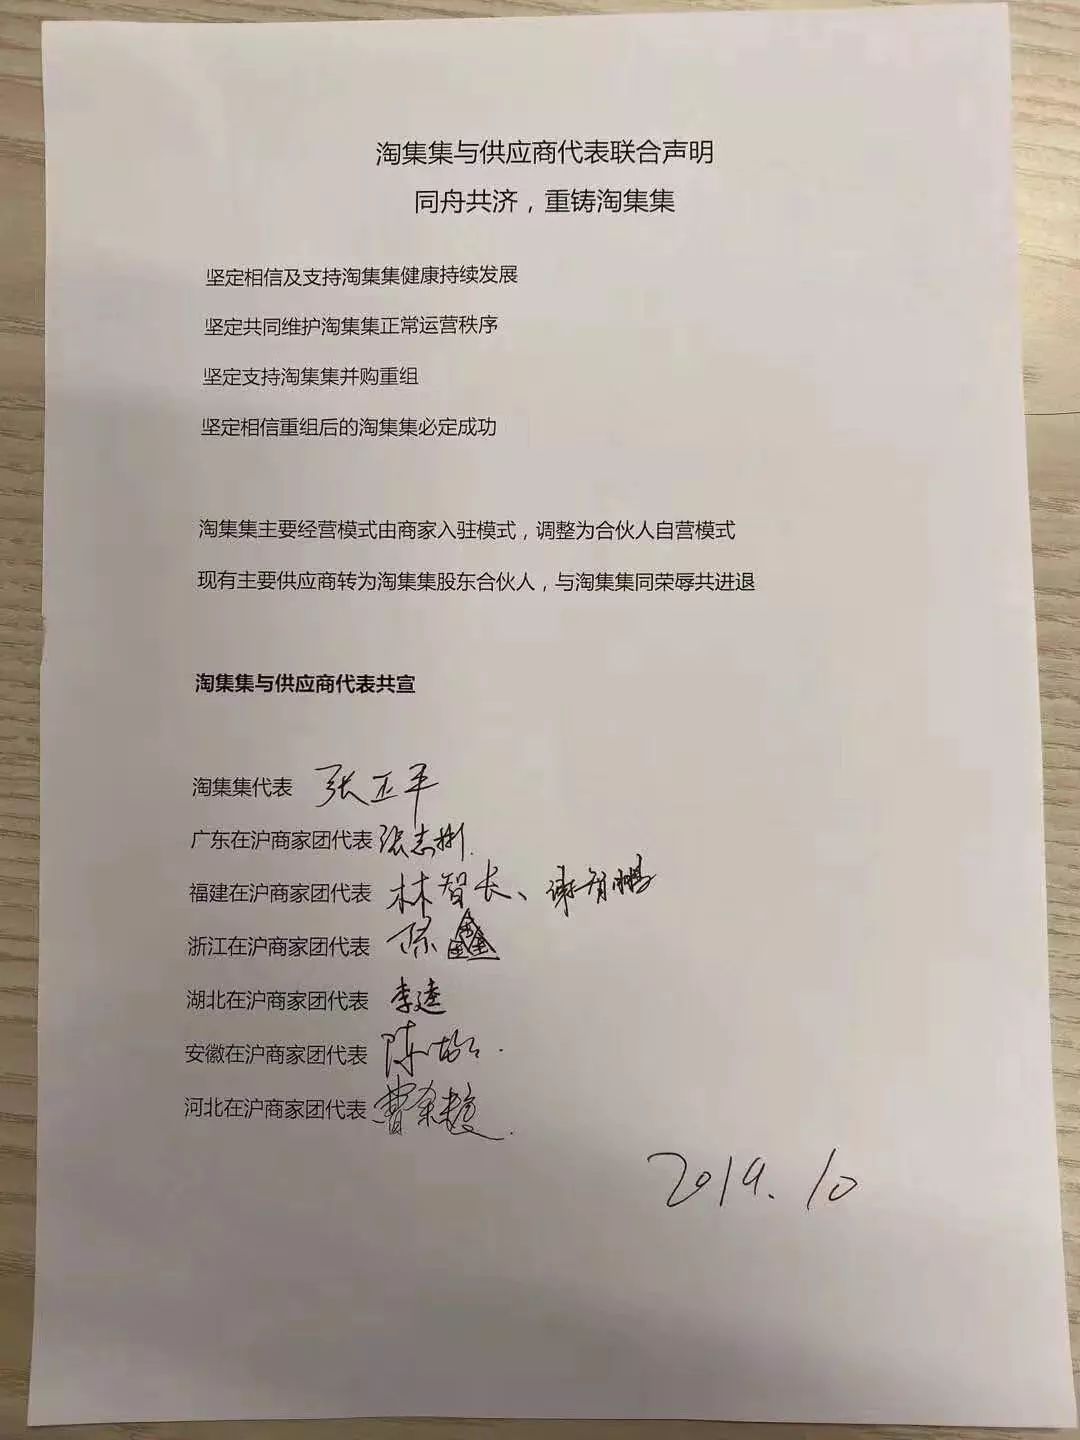 淘集集与供应商代表联合声明
同舟共济，重铸淘集集
坚定相信及支持淘集集健康持续发展
坚定共同维护淘集集正常运营秩序
坚定支持淘集集并购重组
坚定相信重组后的淘集集必定成功
淘集集主要经营模式由商家入驻模式，调整为合伙人自营模式
现有主要供应商转为淘集集股东合伙人，与淘集集同荣辱共进退
淘集集与供应商代表共宣
淘集集代表 张正平
广东在沪商家团代表 张志彬
福建在沪商家团代表 林智长、谢智鹏
浙江在沪商家团代表 陈鑫
湖北在沪商家团代表 李建
安徽在沪商家团代表 陈
河北在沪商家团代表 曹
2019.10